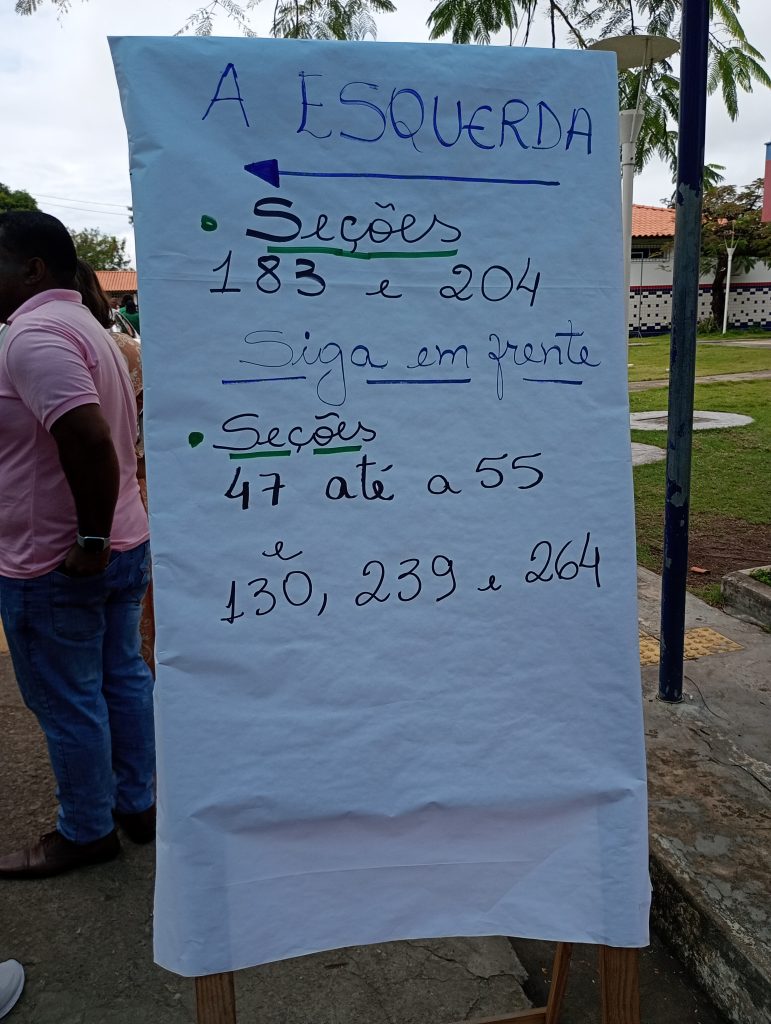 A ESQUERDA
• Seções
183 e 204
Siga em frente
• Seções
47 até a 55
e
130, 239 e 264